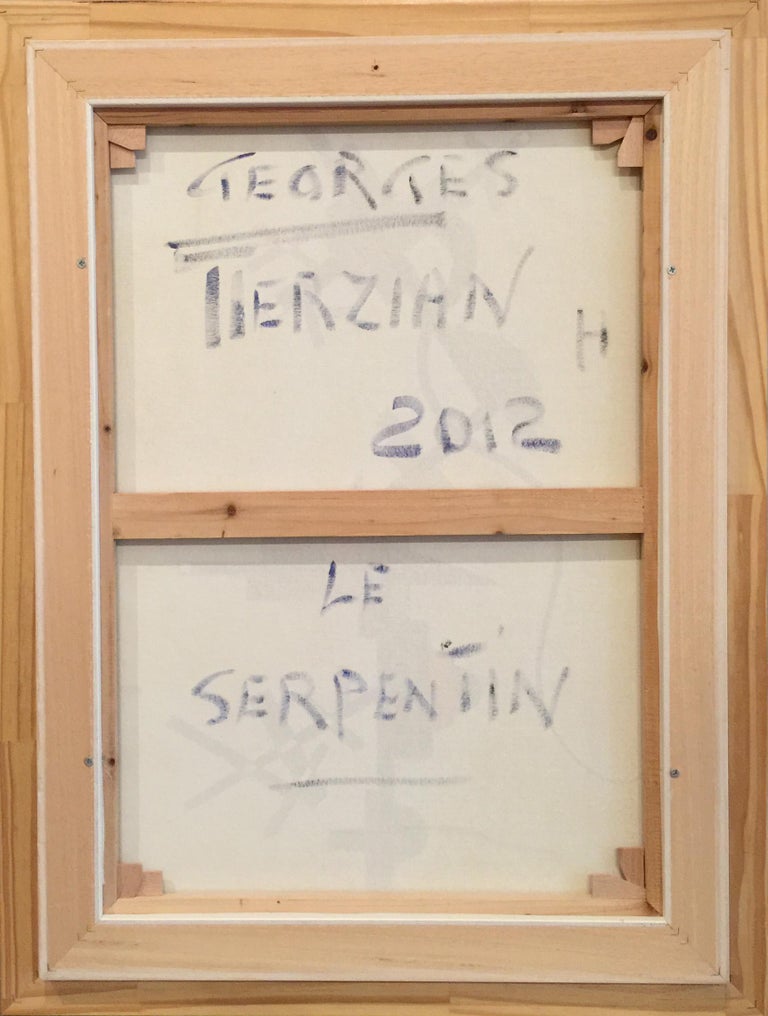 GEORGES
TERZIAN
H
2012
LE
SERPENTIN